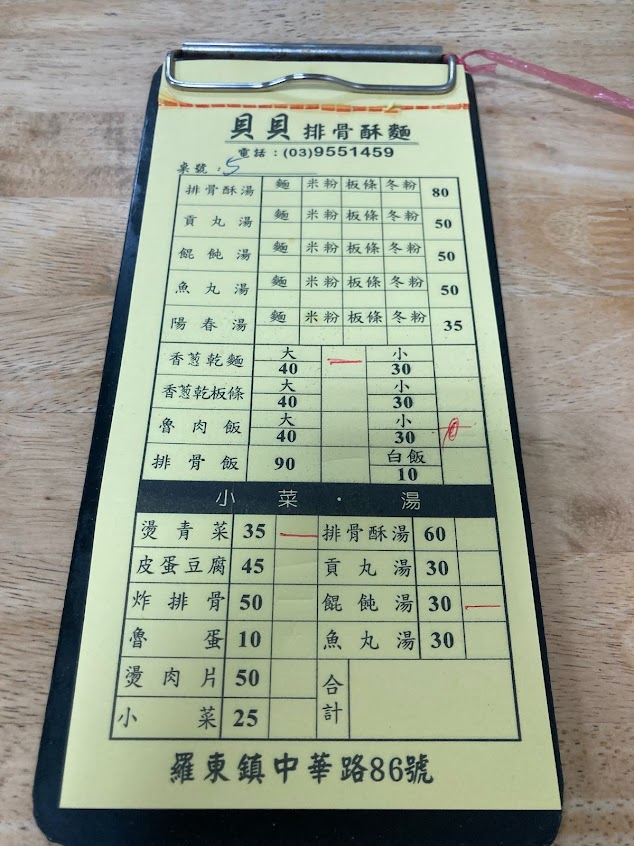 貝貝排骨酥麵
電話：(03)9551459
桌號：5
排骨酥湯 麵 米粉 板條 冬粉 80
貢丸湯 麵 米粉 板條 冬粉 50
餛飩湯 麵 米粉 板條 冬粉 50
魚丸湯 麵 米粉 板條 冬粉 50
陽春湯 麵 米粉 板條 冬粉 35
香蔥乾麵 大 40 一 小 30
香蔥乾板條 大 40 小 30
魯肉飯 大 40 小 30
排骨飯 90 白飯 10
小菜・湯
燙青菜 35 一 排骨酥湯 60
皮蛋豆腐 45 貢丸湯 30
炸排骨 50 餛飩湯 30 一
魯蛋 10 魚丸湯 30
燙肉片 50 合計
小菜 25
羅東鎮中華路86號